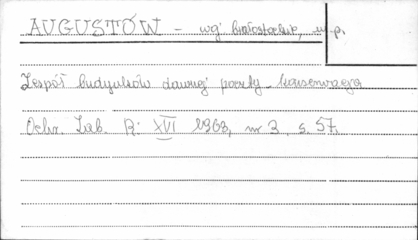 AUGUSTÓW - wg. białostockie, m.p.
Zespół budynków dawnej poczty - konserwacja
Ochr. Zab. R: XVI 1963, nr 3, s. 57.